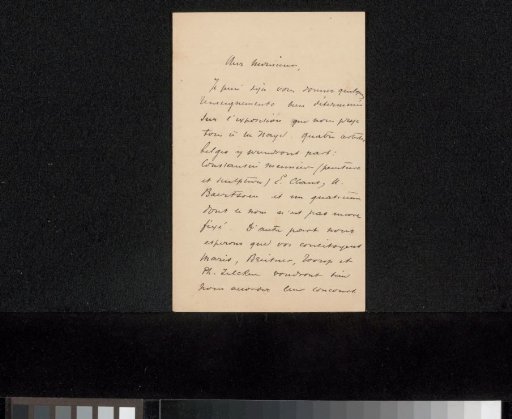 Cher Monsieur,
Je puis déjà vous donner quelques
renseignements bien déterminés
sur l'exposition que nous proje
tons à la Haye. quatre artistes
belges y prendront part:
Constantin Meunier (peinture
et sculpture) E. Claus, A.
Baertsoen et un quatrième
dont le nom n'est pas encore
fixé. D'autre part nous
espérons que vos concitoyens
Maris, Breitner, Toorop et
Ph. Zilcken voudront bien
nous accorder leur concours